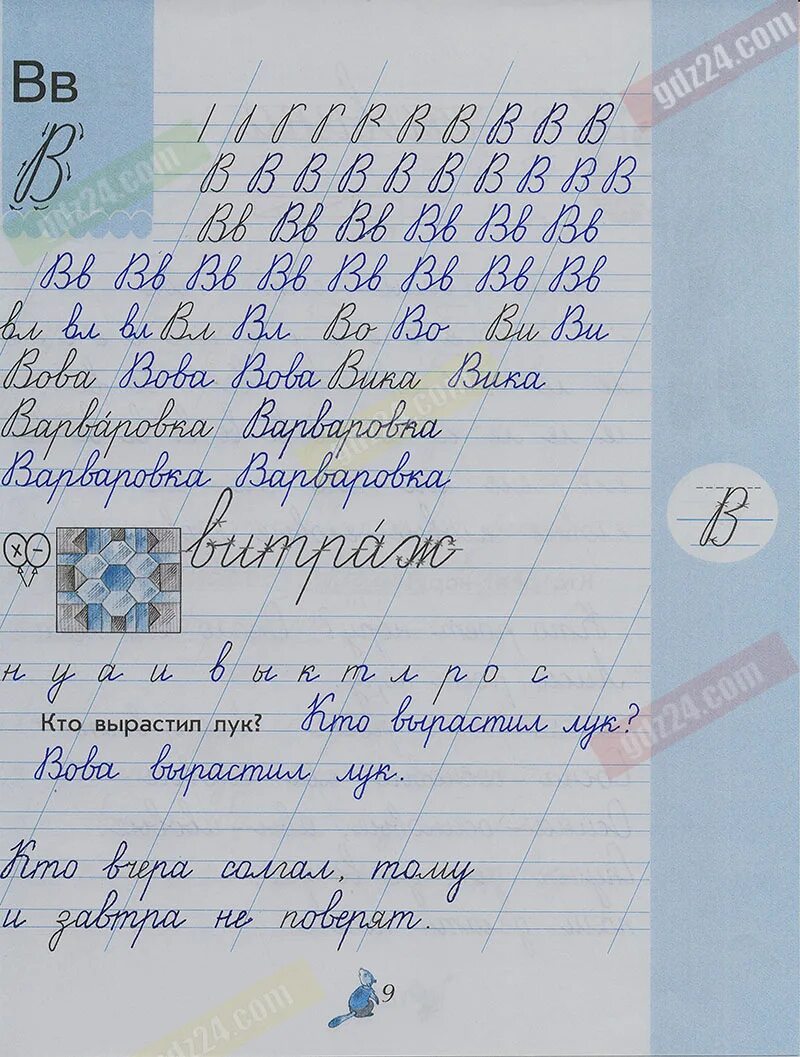 Вв
В
В В В В
В В В В В В В В В В
Вв Вв Вв Вв Вв Вв
Вв Вв Вв Вв Вв Вв Вв Вв
вл вл вл Вл Вл Во Во Ви Ви
Вова Вова Вова Вика Вика
Варва́ровка Варваровка
Варваровка Варваровка
В
× –
витра́ж
н у а и в ы к т л р о с
Кто вырастил лук? Кто вырастил лук?
Вова вырастил лук.
Кто вчера солгал, тому
и завтра не поверят.
9
gdz24.com
gdz24.com
gdz24.com
gdz24.com
gdz24.com